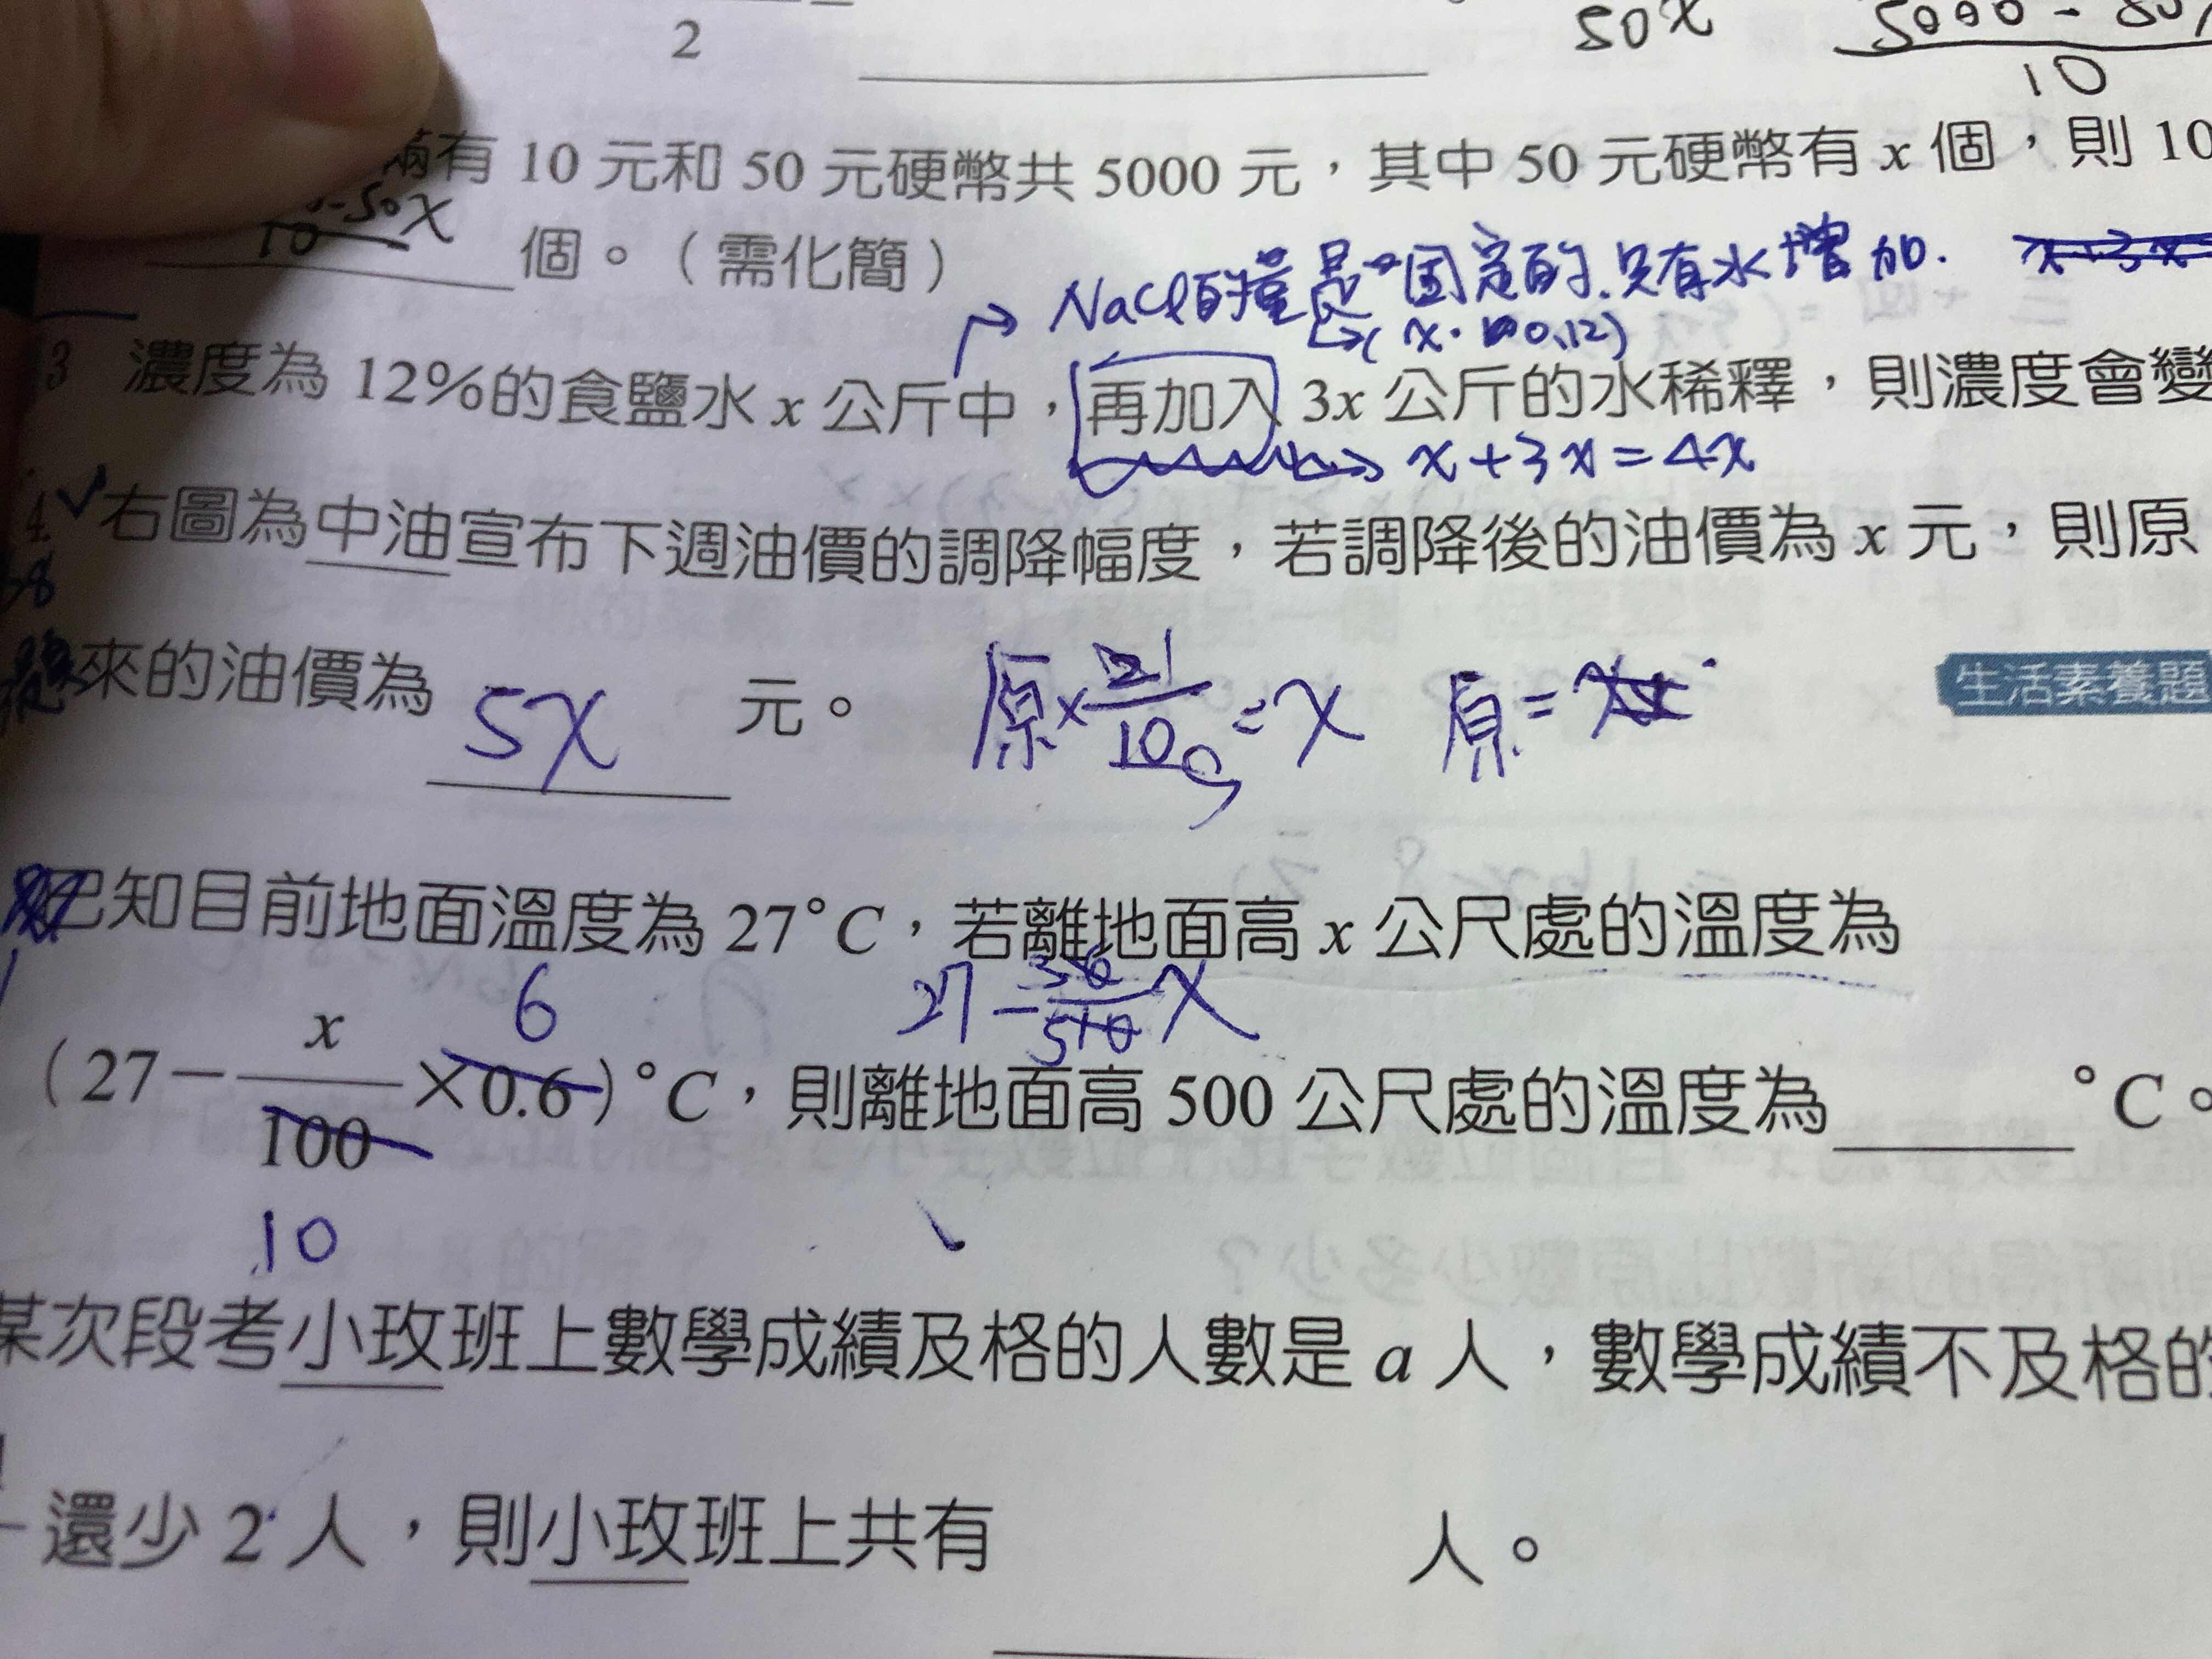 2
50x
5000-50
10
滿有 10 元和 50 元硬幣共 5000 元，其中 50 元硬幣有 x 個，則 10
-50x
10
個。（需化簡）
NaCl的量是固定的.只有水增加.
(x·0.12)
3 濃度為 12%的食鹽水 x 公斤中，再加入 3x 公斤的水稀釋，則濃度會變
x+3x=4x
4 右圖為中油宣布下週油價的調降幅度，若調降後的油價為 x 元，則原
來的油價為 5x 元。
原×
10
=x 原=
生活素養題
已知目前地面溫度為 27°C，若離地面高 x 公尺處的溫度為
6
27-
x
(27-x/100×0.6)°C，則離地面高 500 公尺處的溫度為______°C。
10
某次段考小玫班上數學成績及格的人數是 a 人，數學成績不及格的
還少 2 人，則小玫班上共有 人。